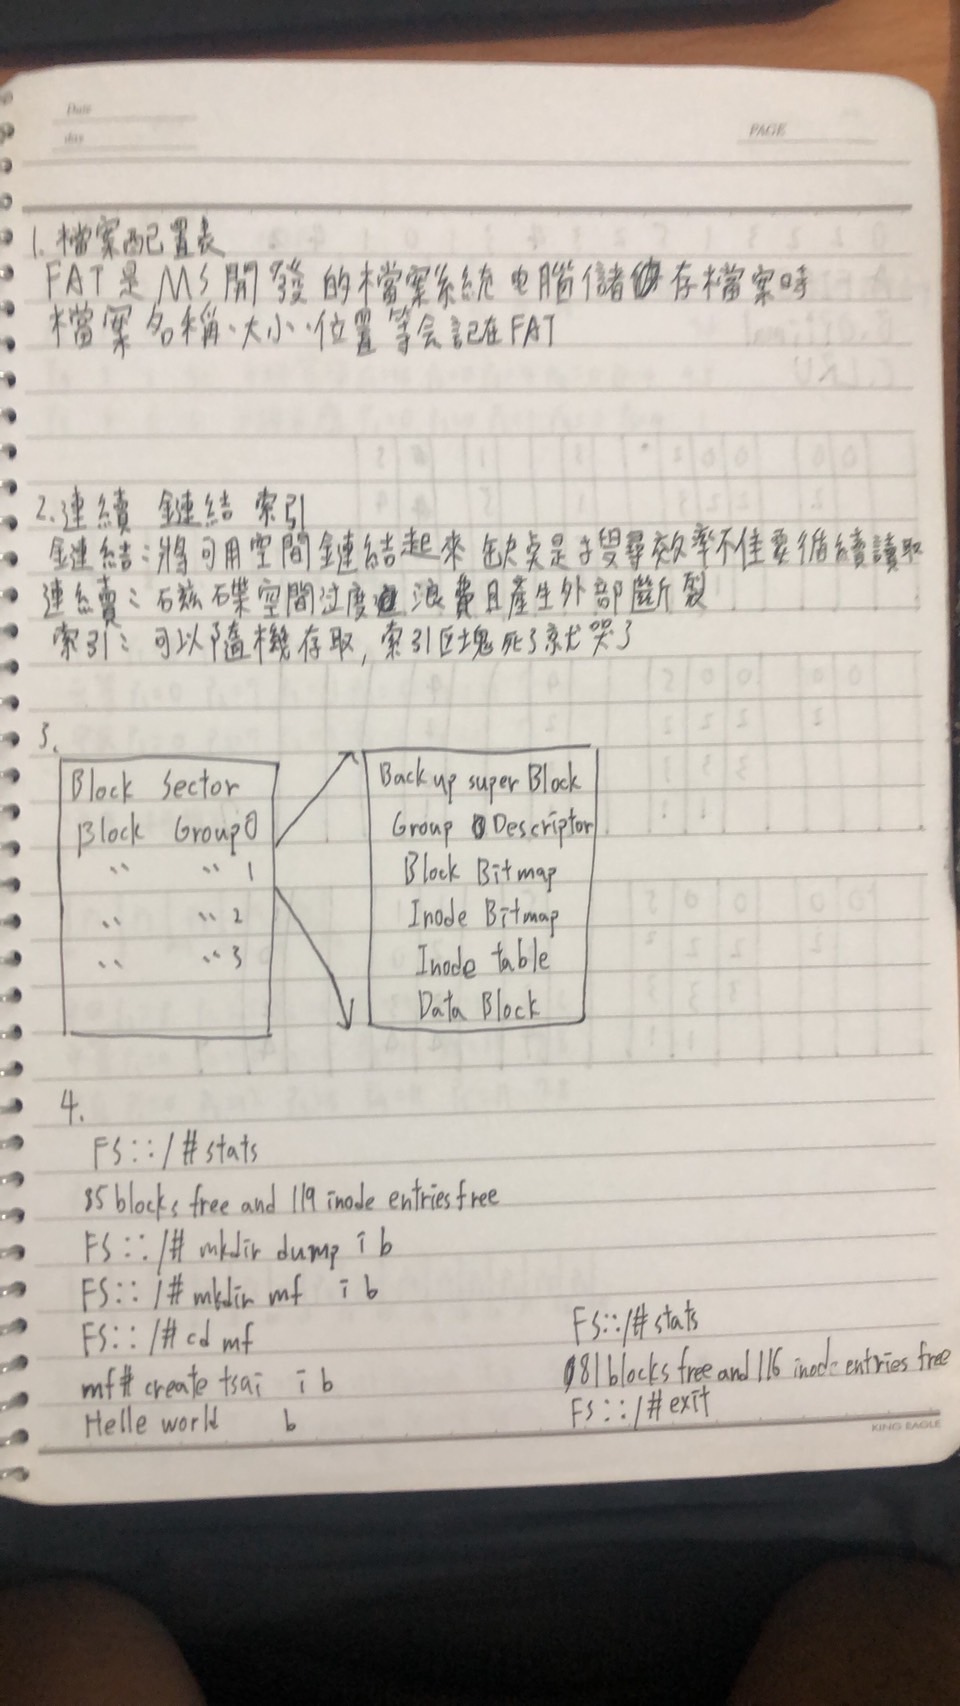 Date
day
PAGE
1. 檔案配置表
FAT是MS開發的檔案系統 电腦儲存檔案時
檔案名稱、大小、位置等会記在FAT
2. 連續 鏈結 索引
鏈結:將可用空間鏈結起來 缺点是搜尋效率不佳要循續讀取
連續:磁碟空間过度浪費且產生外部斷裂
索引:可以隨機存取,索引区塊死了就哭了
3.
Block Sector
Block Group 0
〃 〃 1
〃 〃 2
〃 〃 3
Back up super Block
Group Descriptor
Block Bitmap
Inode Bitmap
Inode table
Data Block
4.
FS::/# stats
85 blocks free and 119 inode entries free
FS::/# mkdir dump i b
FS::/# mkdir mf i b
FS::/# cd mf
mf# create tsai i b
Helle world b
FS::/# stats
81 blocks free and 116 inode entries free
FS::/# exit
KING EAGLE